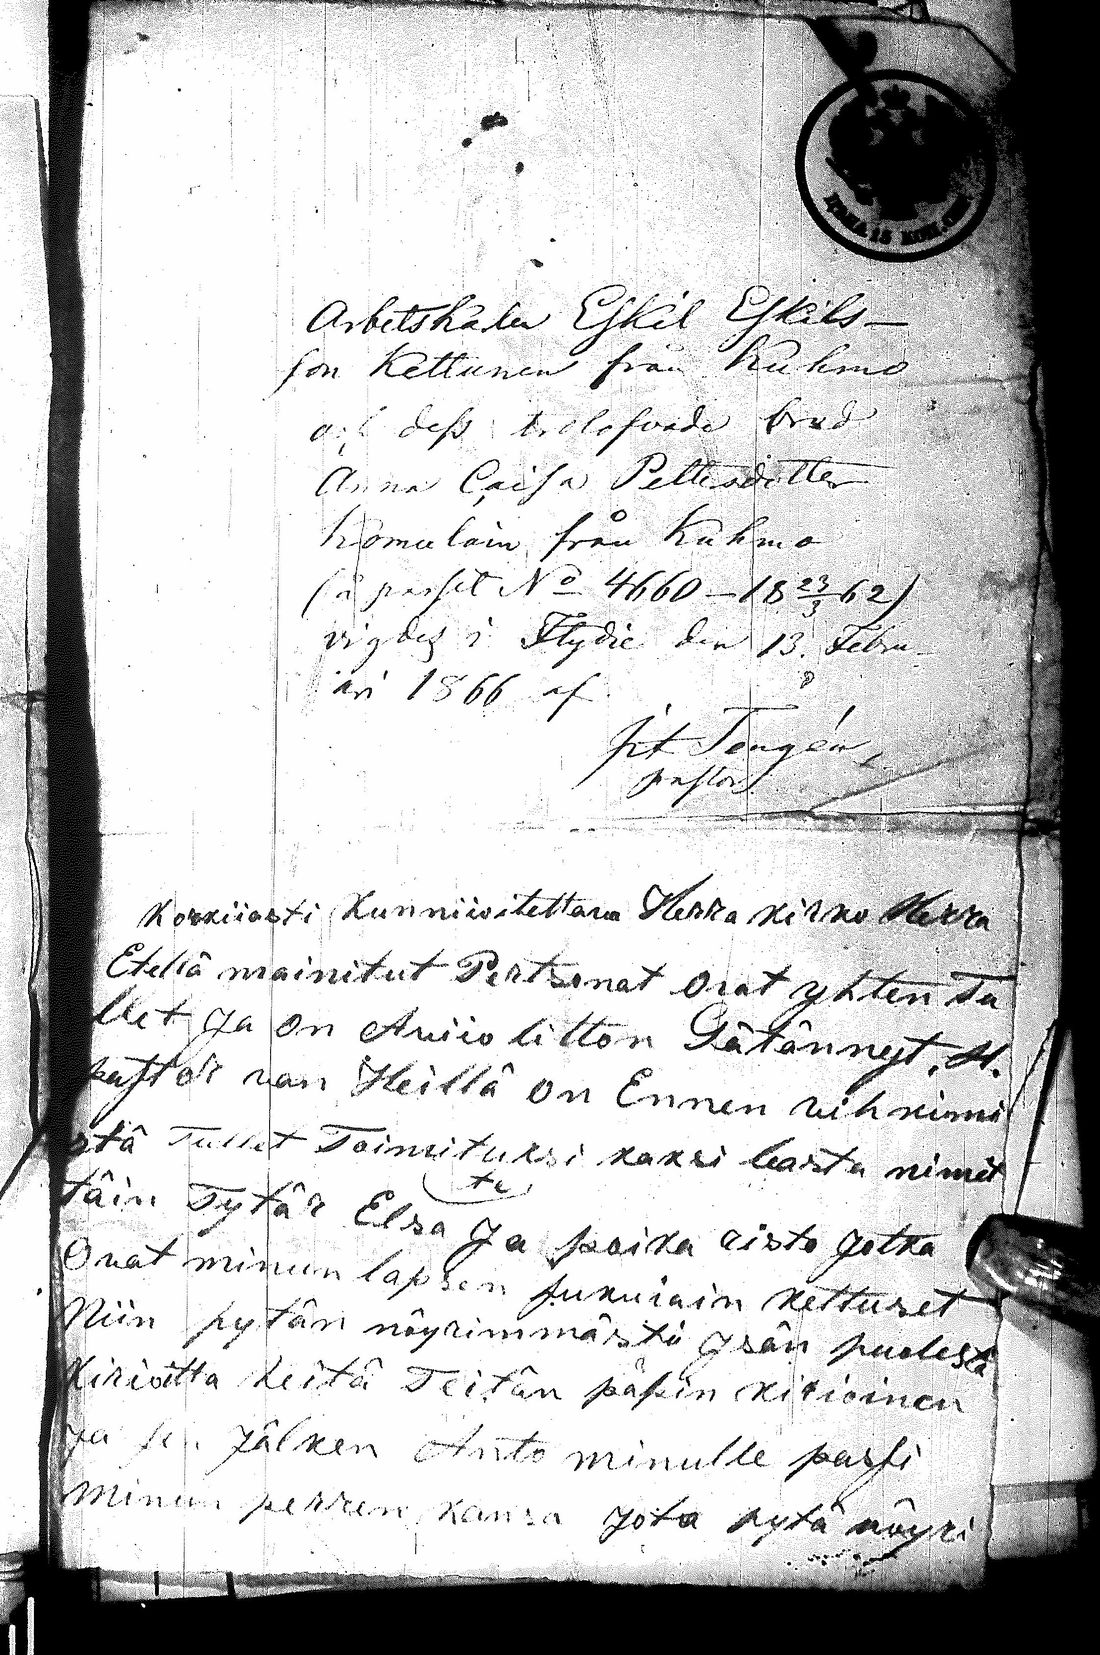 ЦѢНА 15 КОП. СЕР.
Arbetskarlen Eskil Eskils-
son Kettunen från Kuhmo
och dess trolofvade brud
Anna Caisa Pettersdotter
Komulain från Kuhmo
(å passet No 4660 – 18 23/3 62)
vigdes i den 13. Febru-
ari 1866 af
Tengén,
pastor
Korkiiasti Kunniioitettava Herra kirko Herra
Etellä mainitut Pertsonat Ovat yhten Tu
llet Ja on Aviio liiton Päätännyt. H.
pastor van Heillä on Ennen vihkimi
stä Tullet Toimituksi kaksi lasta nimit
täin Tytär Elsa Ja poika risto Jotka
Ovat minun lapsen sukuiain kettuset
Niin pytän nöyrimmästi Jsän puolesta
Kirioitta heitä Teitän päpin kirioinen
Ja sen Jälken Anto minulle passi
Minun perren kansa Jota pytä nöyri